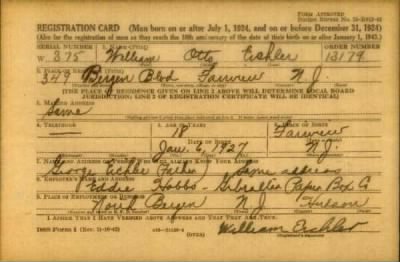 FORM APPROVED
REGISTRATION CARD (Men born on or after July 1, 1924, and on or before December 31, 1924)
(Also for the registration of men as they reach the 18th anniversary of the date of their birth on or after January 1, 1943.)
SERIAL NUMBER
ORDER NUMBER
W 375 William Otto Eichler 13179
349 Bergen Blvd Fairview N.J.
[THE PLACE OF RESIDENCE GIVEN ON LINE 2 ABOVE WILL DETERMINE LOCAL BOARD
JURISDICTION; LINE 2 OF REGISTRATION CERTIFICATE WILL BE IDENTICAL]
3. MAILING ADDRESS
Same
4. TELEPHONE
5. AGE IN YEARS
6. PLACE OF BIRTH
—
18
Fairview
DATE OF BIRTH
Jan. 6, 1927
N.J.
7. NAME AND ADDRESS OF PERSON WHO WILL ALWAYS KNOW YOUR ADDRESS
George Eichler (Father) Same address
8. EMPLOYER'S NAME AND ADDRESS
Eddie Hobbs - Gibraltar Paper Box Co
9. PLACE OF EMPLOYMENT OR BUSINESS
North Bergen N.J. Hudson
I AFFIRM THAT I HAVE VERIFIED ABOVE ANSWERS AND THAT THEY ARE TRUE.
DSS Form 1
(OVER)
William Eichler